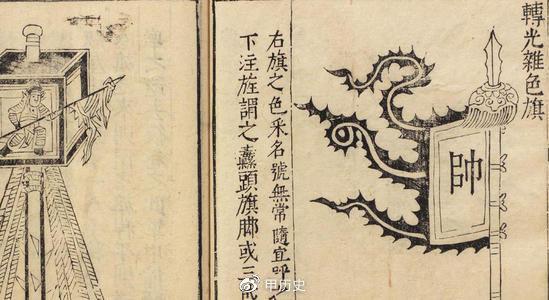 轉光雜色旗
帥
右旗之色采名號無常隨宜
下注旌謂之纛頭旗腳或三
甲历史